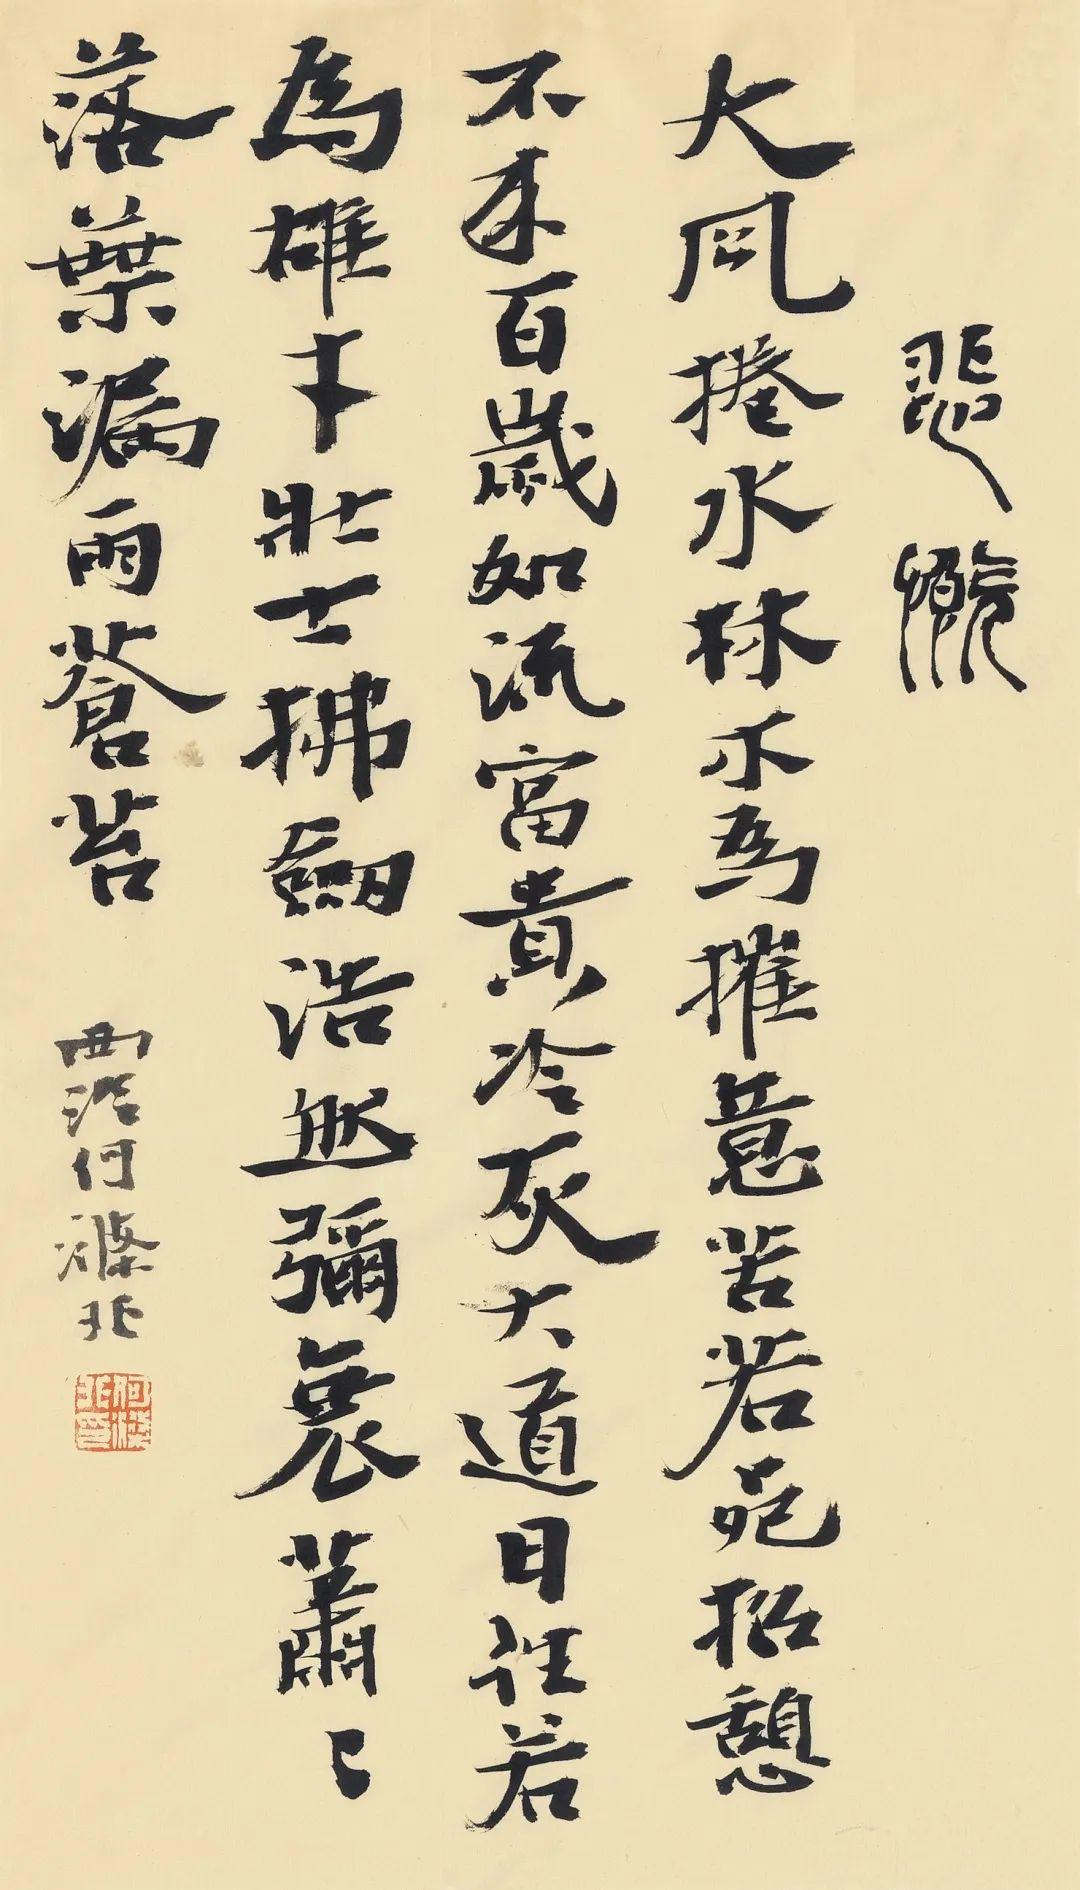 悲慨
大風捲水林木為摧意苦若死招憩
不来百歲如流富貴冷灰大道日往若
為雄才壯士拂劍浩然彌哀蕭〻
落葉漏雨蒼苔
西泠何滌非
何滌非印